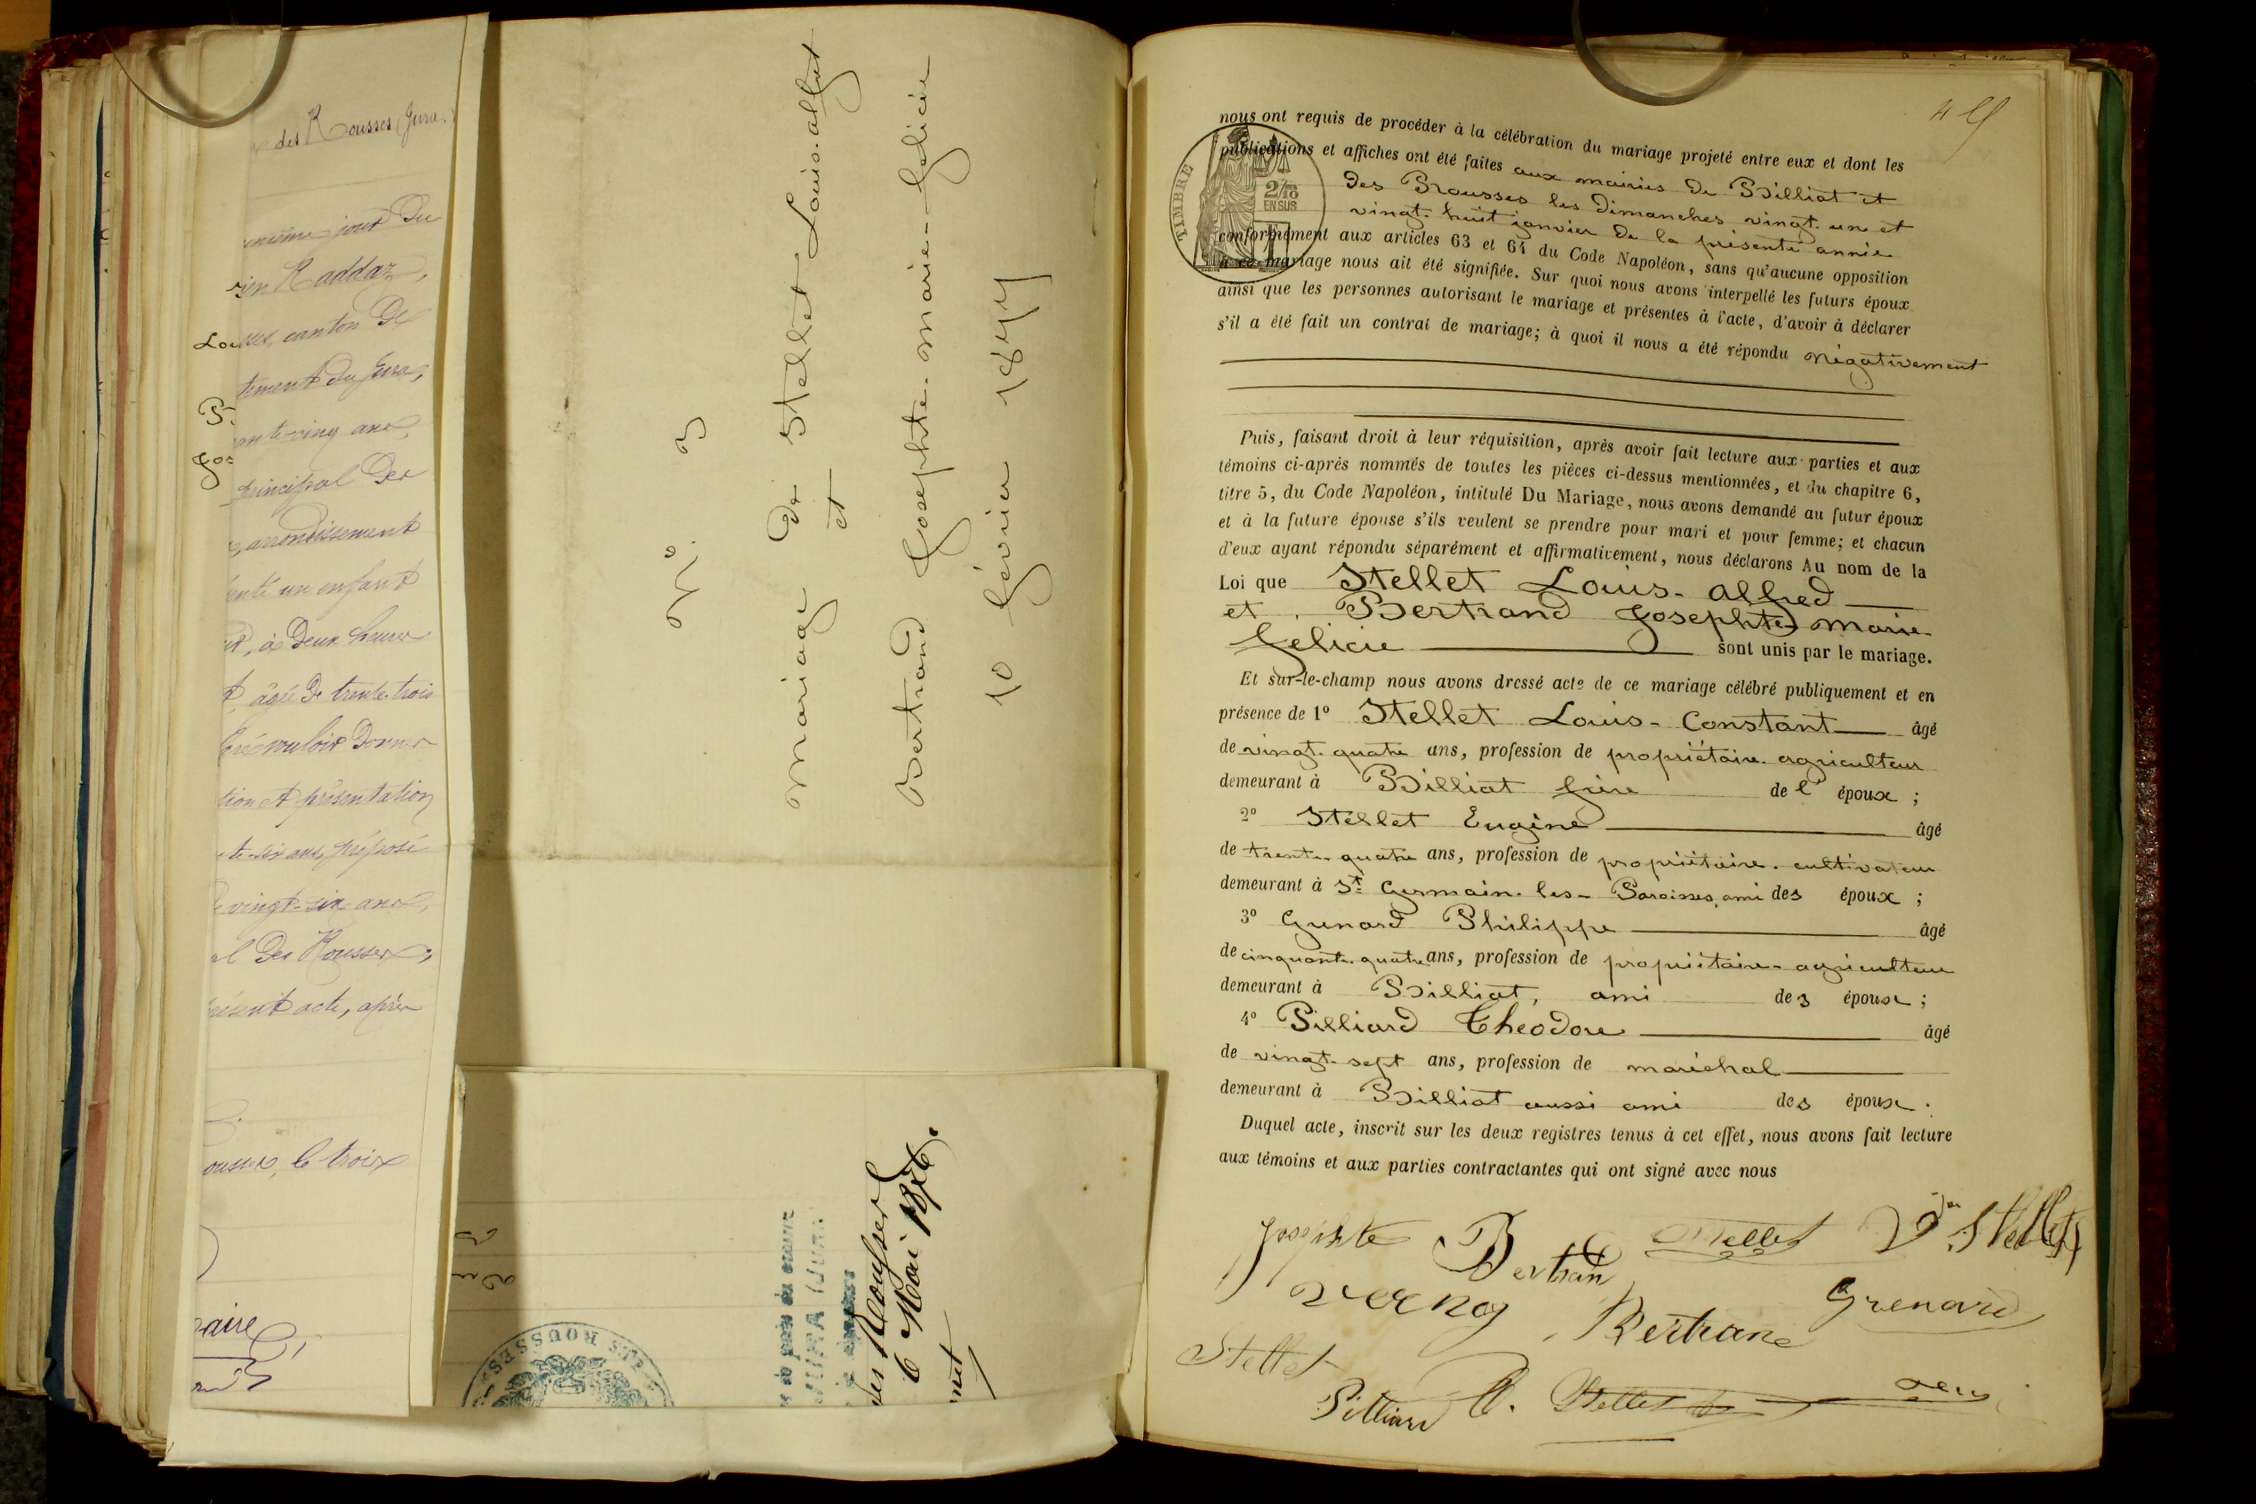 des Rousses (Jura.)
jour du
Raddaz,
canton de
tement du Jura,
ante-cinq ans,
principal des
arrondissement
enté un enfant
, à deux heures
t, âgé de trente-trois
vouloir donner
tion et présentation
te-six ans, préposé
vingt-six ans,
al des Rousses,
présent acte, après
ousses, le trois
aire
Lou
P.
Jos
N°. 3
Mariage de Stellet Louis-alfred
et
Bertrand Josephte-marie-félicie
10 février 1877
des Rousses
6 Mai 1876.
JURA (JURA)
ROUSSES
45
nous ont requis de procéder à la célébration du mariage projeté entre eux et dont les
publications et affiches ont été faites aux mairies de Billiat et
des Rousses les dimanches vingt-un et
vingt-huit janvier de la présente année
conformément aux articles 63 et 64 du Code Napoléon, sans qu'aucune opposition
à ce mariage nous ait été signifiée. Sur quoi nous avons interpellé les futurs époux
ainsi que les personnes autorisant le mariage et présentes à l'acte, d'avoir à déclarer
s'il a été fait un contrat de mariage; à quoi il nous a été répondu négativement
TIMBRE
2/10
EN SUS
Puis, faisant droit à leur réquisition, après avoir fait lecture aux parties et aux
témoins ci-après nommés de toutes les pièces ci-dessus mentionnées, et du chapitre 6,
titre 5, du Code Napoléon, intitulé Du Mariage, nous avons demandé au futur époux
et à la future épouse s'ils veulent se prendre pour mari et pour femme; et chacun
d'eux ayant répondu séparément et affirmativement, nous déclarons Au nom de la
Loi que Stellet Louis-alfred
et Bertrand Josephte-marie-
félicie sont unis par le mariage.
Et sur-le-champ nous avons dressé acte de ce mariage célébré publiquement et en
présence de 1° Stellet Louis-Constant âgé
de vingt-quatre ans, profession de propriétaire-agriculteur
demeurant à Billiat frère de l'époux ;
2° Stellet Eugène âgé
de trente-quatre ans, profession de propriétaire-cultivateur
demeurant à St Germain-les-Paroisses, ami des époux ;
3° Grenard Philippe âgé
de cinquante-quatre ans, profession de propriétaire-agriculteur
demeurant à Billiat, ami des époux ;
4° Pilliard Théodore âgé
de vingt-sept ans, profession de maréchal
demeurant à Billiat aussi ami des époux.
Duquel acte, inscrit sur les deux registres tenus à cet effet, nous avons fait lecture
aux témoins et aux parties contractantes qui ont signé avec nous
Josephte Bertrand Stellet Stellet
Vernoy Bertrand Grenard
Stellet
Pilliard Stellet